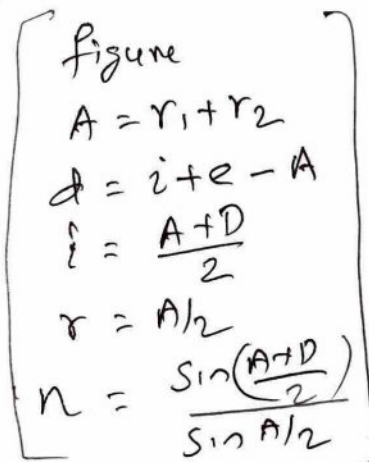 figure
A = r₁ + r₂
d = i + e - A
i = (A + D)/2
r = A/2
n = sin((A + D)/2) / sin A/2